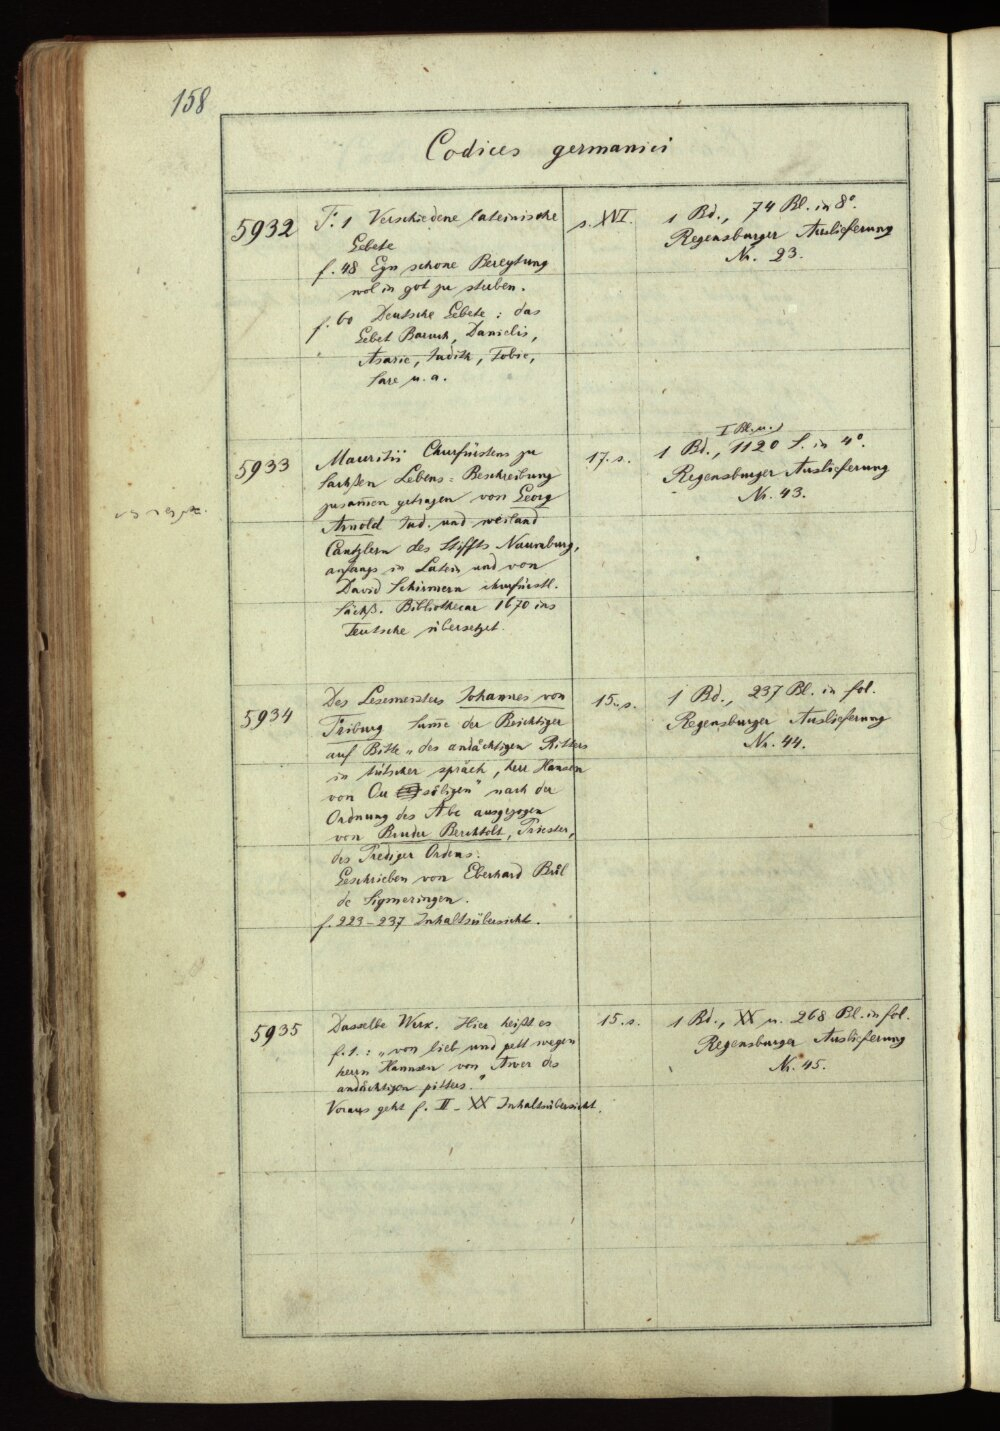 158
Codices germanici
5932
F. 1 Verschiedene lateinische
Gebete
f. 48 Eyn schone Bereytung
wol in got zu sterben.
f. 60 Deutsche Gebete: das
Gebet Baruch, Danielis,
Asarie, Judith, Tobie,
Sare u. a.
s. XVI.
1 Bd., 74 Bl. in 8°.
Regensburger Auslieferung
Nr. 23.
5933
Mauritii Churfürstens zu
Sachßen Lebens=Beschreibung
zusam̅en getragen von Georg
Arnold Jud. und weiland
Cantzlern des Stiffts Naumburg,
anfangs in Latein und von
David Schirmern churfürstl.
Sächß. Bibliothecar 1670 ins
Teutsche übersetzet.
17. s.
I Bl. u.
1 Bd., 1120 S. in 4°.
Regensburger Auslieferung
Nr. 43.
5934
Des Lesemeisters Johannes von
Friburg Sum̅e der Beichtiger
auf Bitte „des andächtigen Ritters
in tütscher spräch, herr Hansen
von Ou säligen" nach der
Ordnung des Abc ausgezogen
von Bruder Berchtolt, Priester,
des Prediger Ordens.
Geschrieben von Eberhard Brůl
de Sigmeringen.
f. 223–237 Inhaltsübersicht.
15. s.
1 Bd., 237 Bl. in fol.
Regensburger Auslieferung
Nr. 44.
5935
Dasselbe Werk. Hier heißt es
f. 1.: „von lieb und pett wegen
herrn Hannsen von Awer des
andächtigen ritters."
Voraus geht f. II–XX Inhaltsübersicht.
15. s.
1 Bd., XX u. 268 Bl. in fol.
Regensburger Auslieferung
Nr. 45.